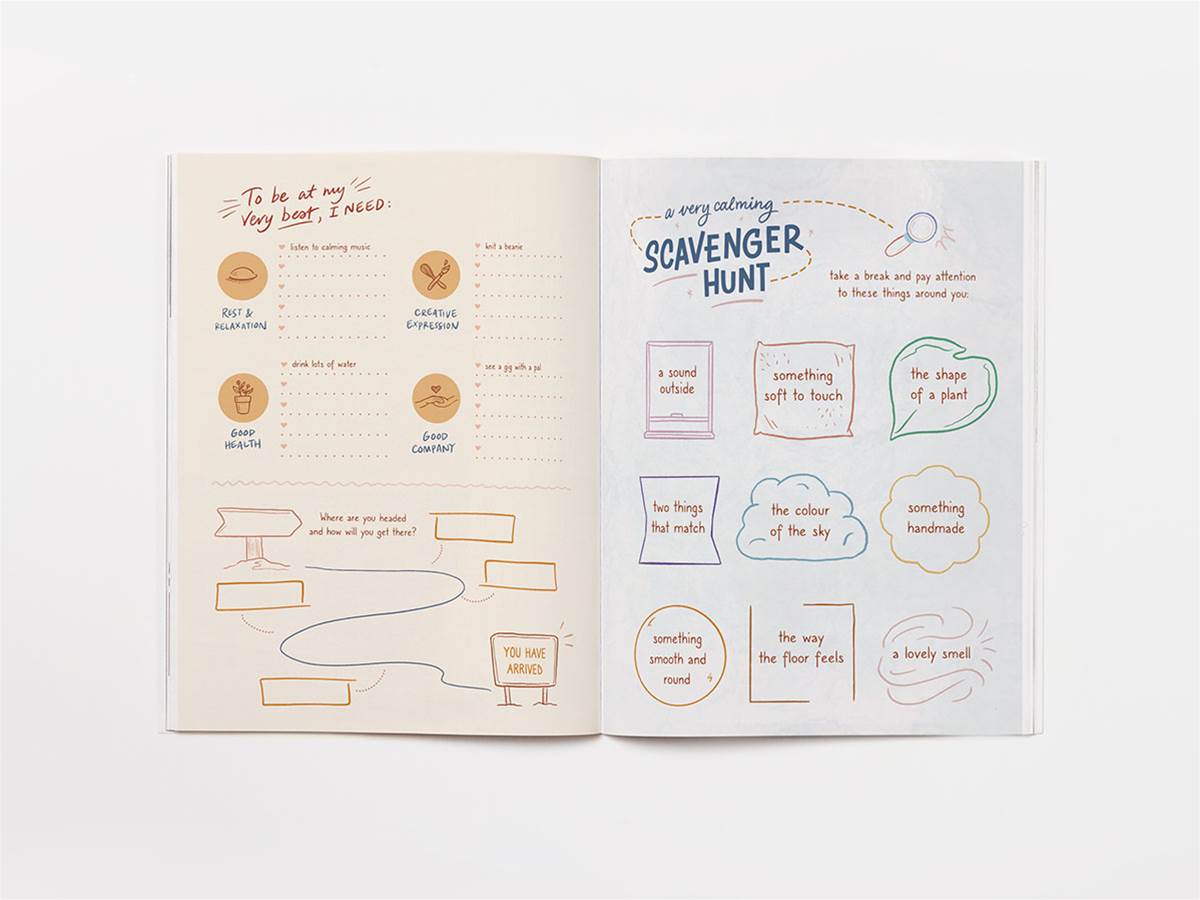 To be at my
very best, I NEED:
listen to calming music
REST &
RELAXATION
knit a beanie
CREATIVE
EXPRESSION
drink lots of water
GOOD
HEALTH
see a gig with a pal
GOOD
COMPANY
Where are you headed
and how will you get there?
YOU HAVE
ARRIVED
a very calming
SCAVENGER
HUNT
take a break and pay attention
to these things around you:
a sound
outside
something
soft to touch
the shape
of a plant
two things
that match
the colour
of the sky
something
handmade
something
smooth and
round
the way
the floor feels
a lovely smell